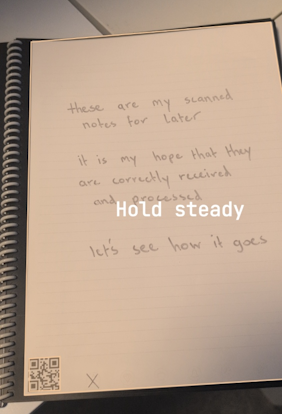 these are my scanned
notes for later
it is my hope that they
are correctly received
and processed
Hold steady
let's see how it goes
X